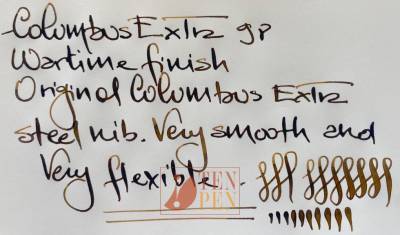 Columbus Extra gp
Wartime finish
Original Columbus Extra
steel nib. Very smooth and
Very flexible.
TEN
PEN